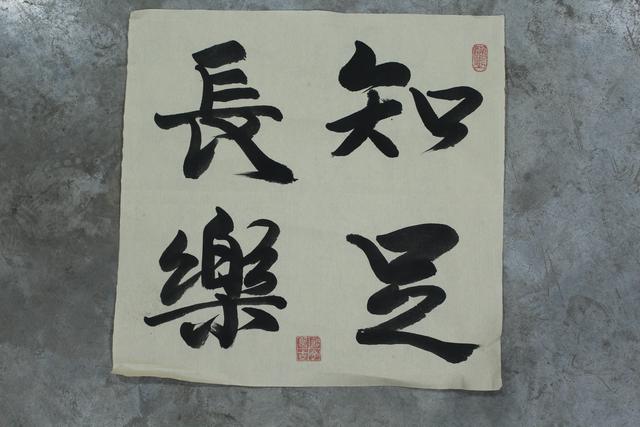 知足
長樂